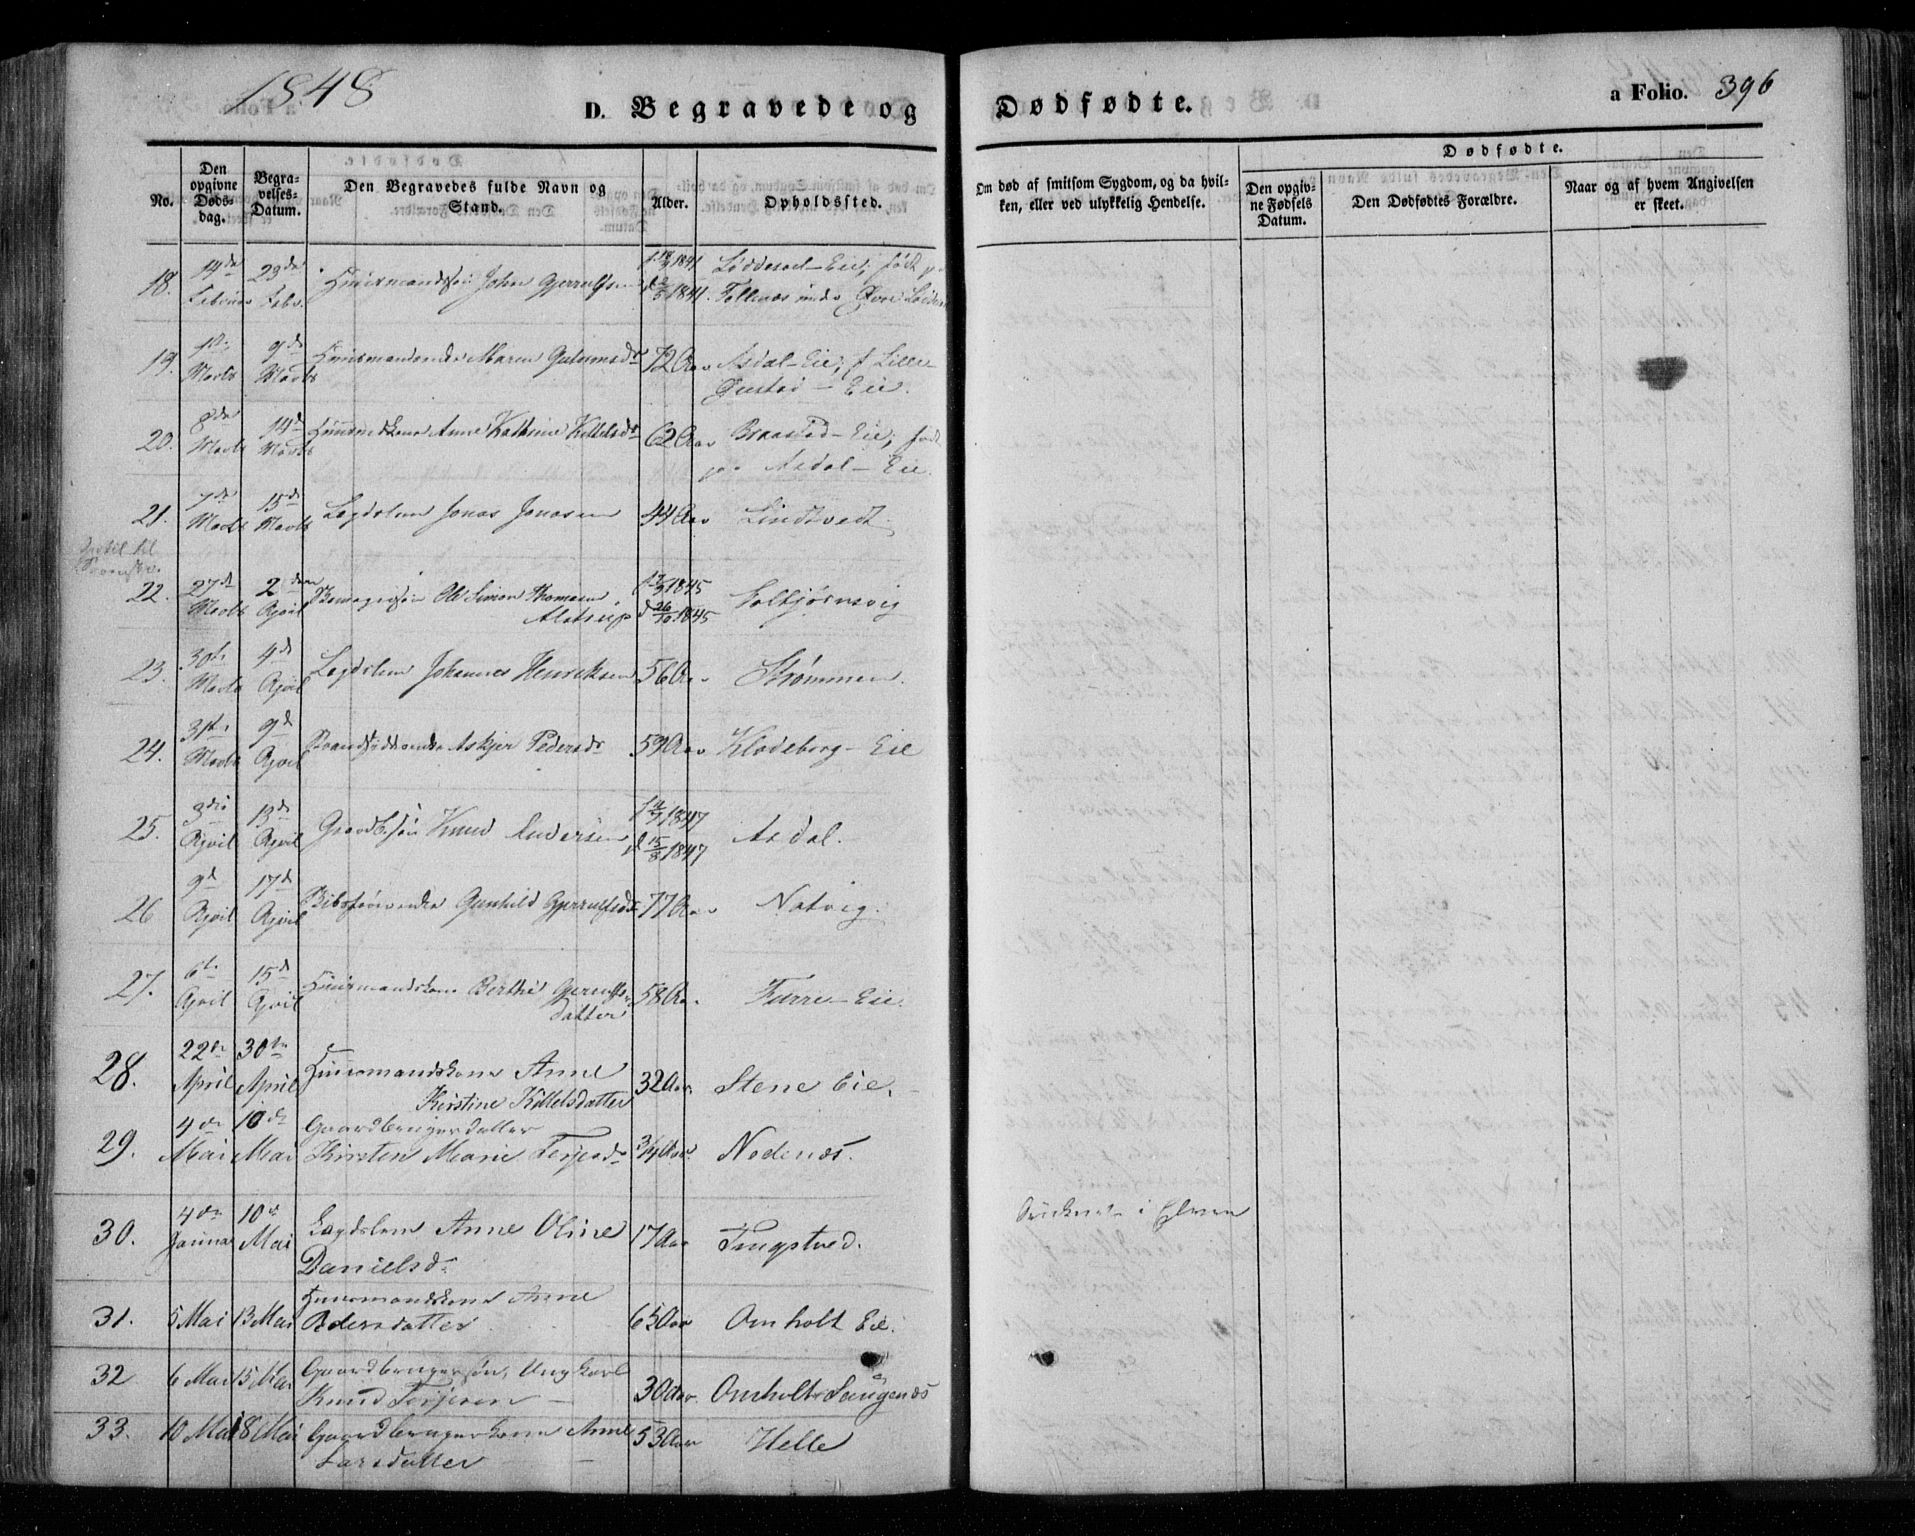 1848
D. Begravede og Dødfødte.
a Folio. 396
No.
Den opgivne Døds-dag.
Begra-velses-Datum.
Den Begravedes fulde Navn og Stand.
Alder.
Opholdssted.
Om død af smitsom Sygdom, og da hvil-ken, eller ved ulykkelig Hendelse.
Dødfødte.
Den opgiv-ne Fødsels Datum.
Den Dødfødtes Forældre.
Naar og af hvem Angivelsen er skeet.
18. 14de 23de Huusmandssøn John Gjerulfsen 1841 Løddesøl-Eie, født
Februar Febr. 1841.
19. 9de Maren 72 Aar Asdal-Eie, f. Lille-
Marts Marts Eie.
20. 8de 14de Anne Kathrine Kittelsdr 62 Aar Braastad-Eie, født
Marts Marts paa Asdal-Eie.
21. 7de 15de Lægdslem Jonas Jonasen 44 Aar Lindtvedt.
Marts Marts
22. 27de 2den Ole Simon Thomesen 1845 Kolbjørnsvig
Marts April Alstrup d 26/10 1845
23. 30te 4de Lægdslem Johannes Henriksen 56 Aar Strømmen.
Marts April
24. 31te 9de Askjer Pedersdr 59 Aar Klodeborg-Eie
Marts April
25. 3die 13de Gaardb.søn Knud Andersen 1847 Asdal.
April April 1847
26 9de 17de Gunhild Gjerulfsdr 77 Aar Natvig.
April April
27. 6te 15de Huusmandskone Berthe Gjerulfs- 58 Aar. Furre-Eie.
April April datter
28. 22de 30te Huusmandskone Anne 32 Aar. Stene Eie.
April April Kirstine Kittelsdatter
29. 4de 10de Gaardbrugerdatter
Mai Mai Kirsten Marie Terjesdr 3/4 Aar. Nedenæs.
30. 4de 10de Lægdslem Anne Oline 17 Aar Tingstved. Druknet i Elven
Januar Mai Danielsdr
31. 5 Mai 13 Mai Huusmandskone Anne 65 Aar Omholt Eie.
Pedersdatter
32 6 Mai 15 Mai Gaardbrugersøn, Ungkarl
Knud Terjesen 30 Aar. Omholt
33. 10 Mai 18 Mai Gaardbrugerkone Anne 53 Aar Helle
Larsdatter